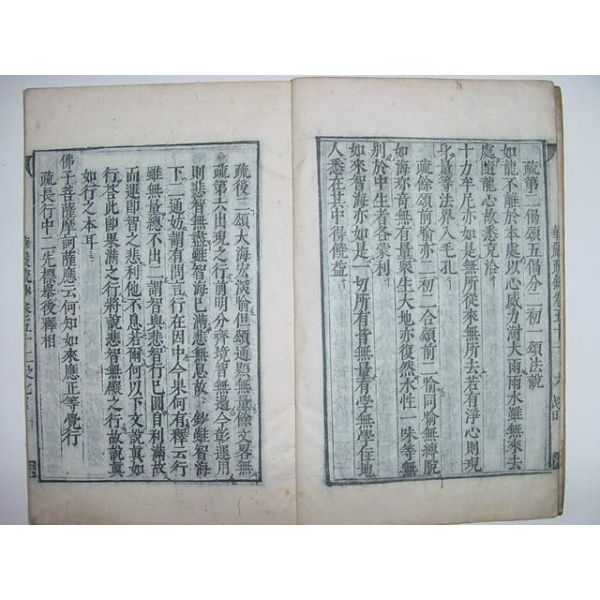 疏第二偈頌五偈分二初一頌法說
如龍不離於本處以心威力澍大雨雨水雖無來去
處隨龍心故悉充洽
十力牟尼亦如是無所從來無所去若有淨心則現
身量等法界入毛孔
疏餘頌前喻亦二初二合頌前二喻同喻無縛脫
如海亦奇無有量眾生大地亦復然水性一味等無
別於中生者各蒙利
如來智海亦如是一切所有皆無量有學無學住地
人悉在其中得饒益
疏後二頌大海宏深喻但頌通顯無量餘文畧無
疏第六出現之行前明分齊境智無邊今彰運用
則悲智無盡雖智海已滿悲無息故 鈔雖智海
下二通妨謂有問言行在因中今果何有釋云行
雖無量總不出二謂智與悲智行已圓自利滿故
而運即智之悲利他不息若爾何以下文說真如
行答此即果滿之行將說悲智無礙之行故說真
如行之本耳
佛子菩薩摩訶薩應云何知如來應正等覺行
疏長行中二先標舉後釋相